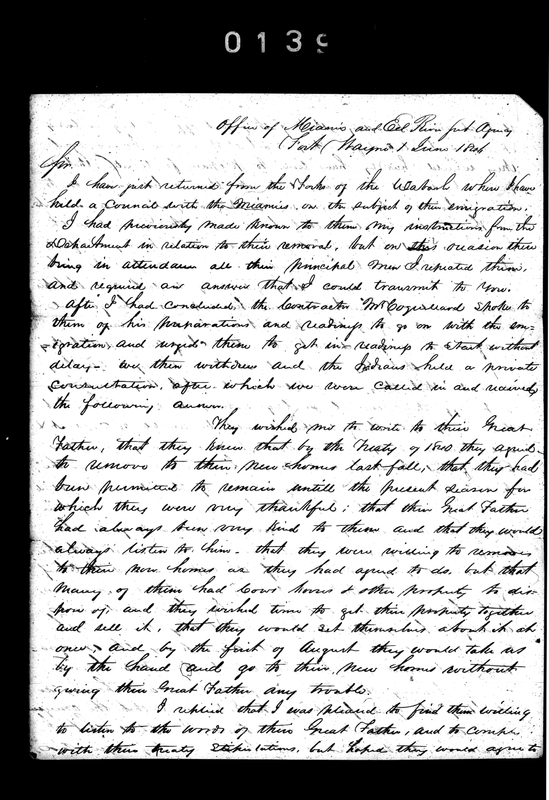 0139
Office of Miamie and Eel River sub Agency
Fort Wayne 1 June 1846
Sir
I have just returned from the Forks of the Wabash where I have
held a Council with the Miamies, on the subject of their emigration.
I had previously made known to them my instructions from the
Department in relation to their removal, but on this occasion there
being in attendance all their principal men I repeated them,
and required an answer that I could transmit to you.
After I had concluded, the Contractor Mr Coquillard spoke to
them of his preparations and readiness to go on with the em-
igration, and urged them to get in readiness to start without
delay - we then withdrew and the Indians held a private
Consultation, after which we were called in and received
the following answer.
They wished me to write to their Great
Father, that they knew that by the Treaty of 1840 they agreed
to remove to their new homes last fall, that they had
been permitted to remain untill the present season for
which they were very thankful; that their Great Father
had always been very kind to them and that they would
always listen to him - that they were willing to remove
to their new homes as they had agreed to do, but that
many of them had Cows horses & other property to dis-
pose of, and they wished time to get their property together
and sell it, that they would set themselves about it at
once, and by the first of August they would take us
by the hand and go to their new homes without
giving their Great Father any trouble.
I replied that I was pleased to find them willing
to listen to the words of their Great Father, and to comply
with their treaty stipulations, but hoped they would agree to